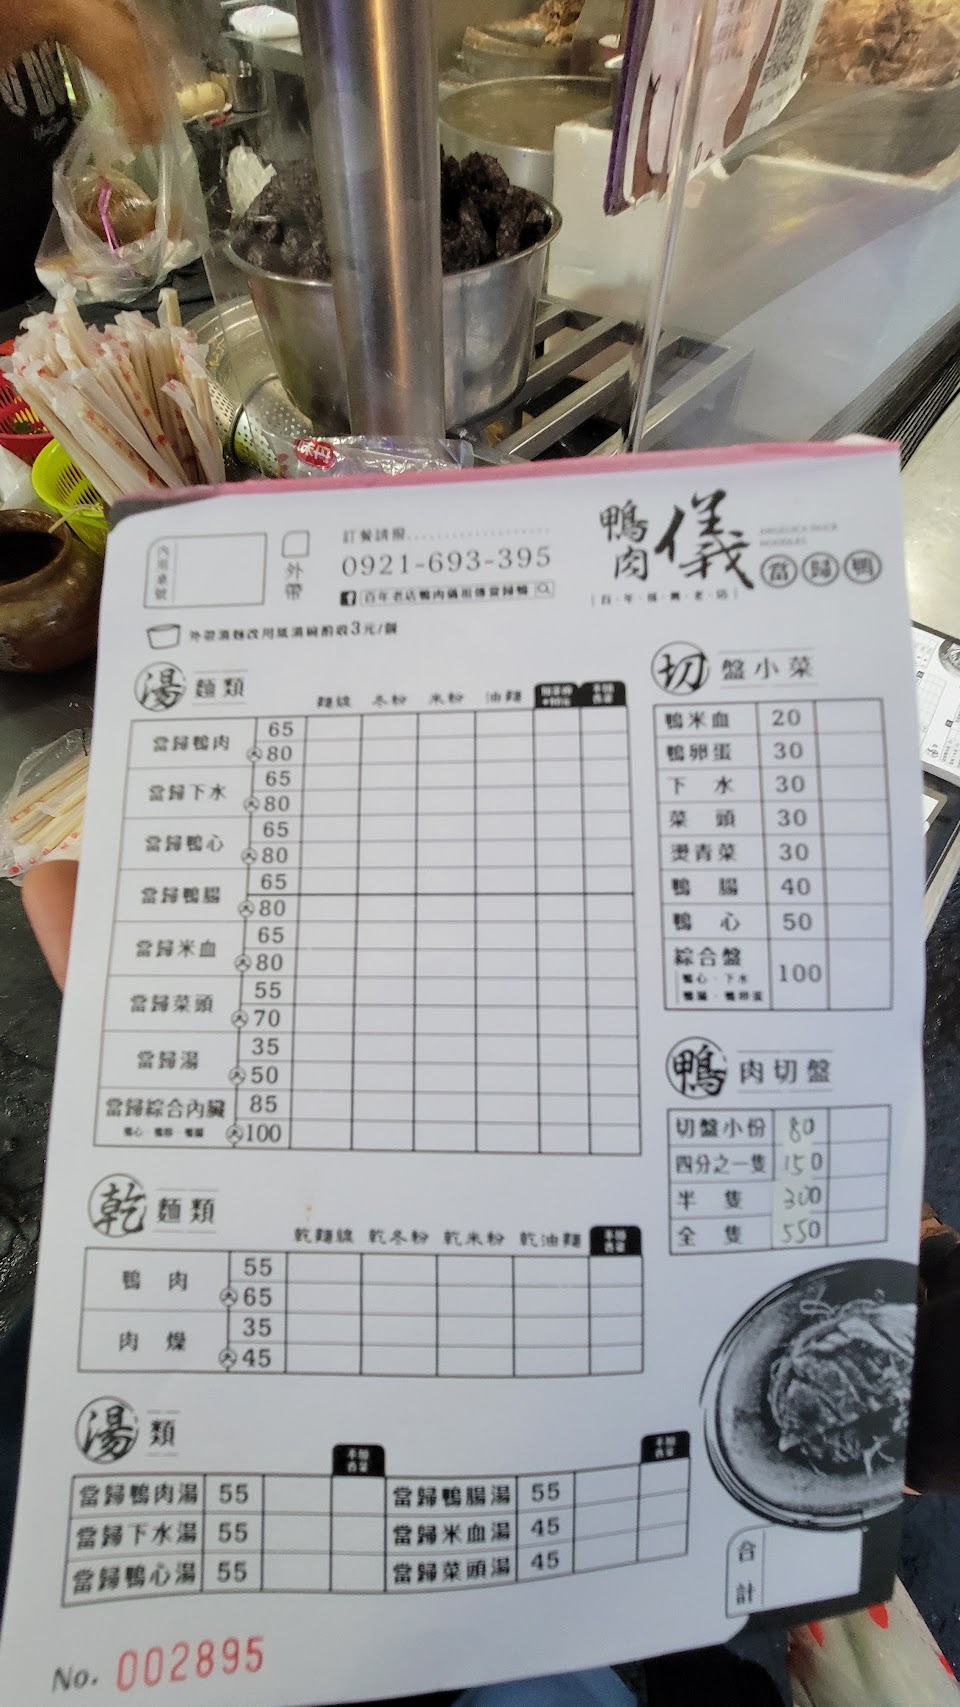 內用桌號
外帶
訂餐請撥
0921-693-395
百年老店鴨肉儀祖傳當歸鴨
鴨肉儀
ANGELICA DUCK
NOODLES
當歸鴨
外帶湯麵改用紙湯碗酌收3元/個
湯麵類
麵線 冬粉 米粉 油麵
當歸鴨肉 65
大80
當歸下水 65
大80
當歸鴨心 65
大80
當歸鴨腸 65
大80
當歸米血 65
大80
當歸菜頭 55
大70
當歸湯 35
大50
當歸綜合內臟 85
大100
乾麵類
乾麵線 乾冬粉 乾米粉 乾油麵
鴨肉 55
大65
肉燥 35
大45
湯類
當歸鴨肉湯 55 當歸鴨腸湯 55
當歸下水湯 55 當歸米血湯 45
當歸鴨心湯 55 當歸菜頭湯 45
切盤小菜
鴨米血 20
鴨卵蛋 30
下水 30
菜頭 30
燙青菜 30
鴨腸 40
鴨心 50
綜合盤 100
鴨心·下水
鴨腸·鴨卵蛋
鴨肉切盤
切盤小份 80
四分之一隻 150
半隻 300
全隻 550
合計
No. 002895